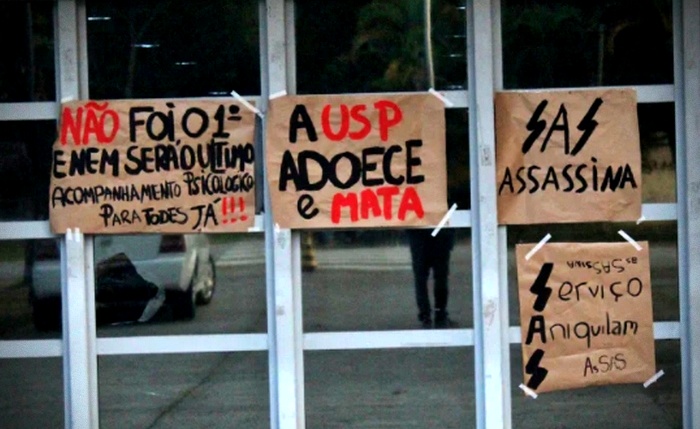 NÃO FOI O 1º
E NEM SERÁ O ULTIMO
ACOMPANHAMENTO PSICOLOGICO
PARA TODES JÁ!!!
A USP
ADOECE
e MATA
SAS
ASSASSINA
Serviço
Aniquilam
AsSIS